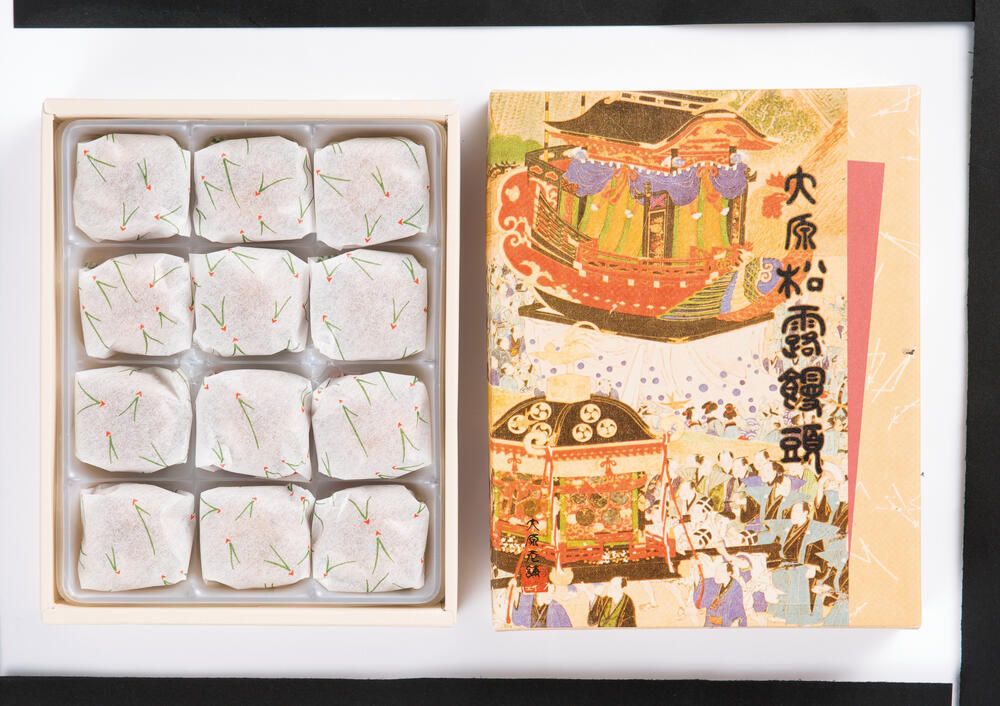 大原松露饅頭
大原老舗